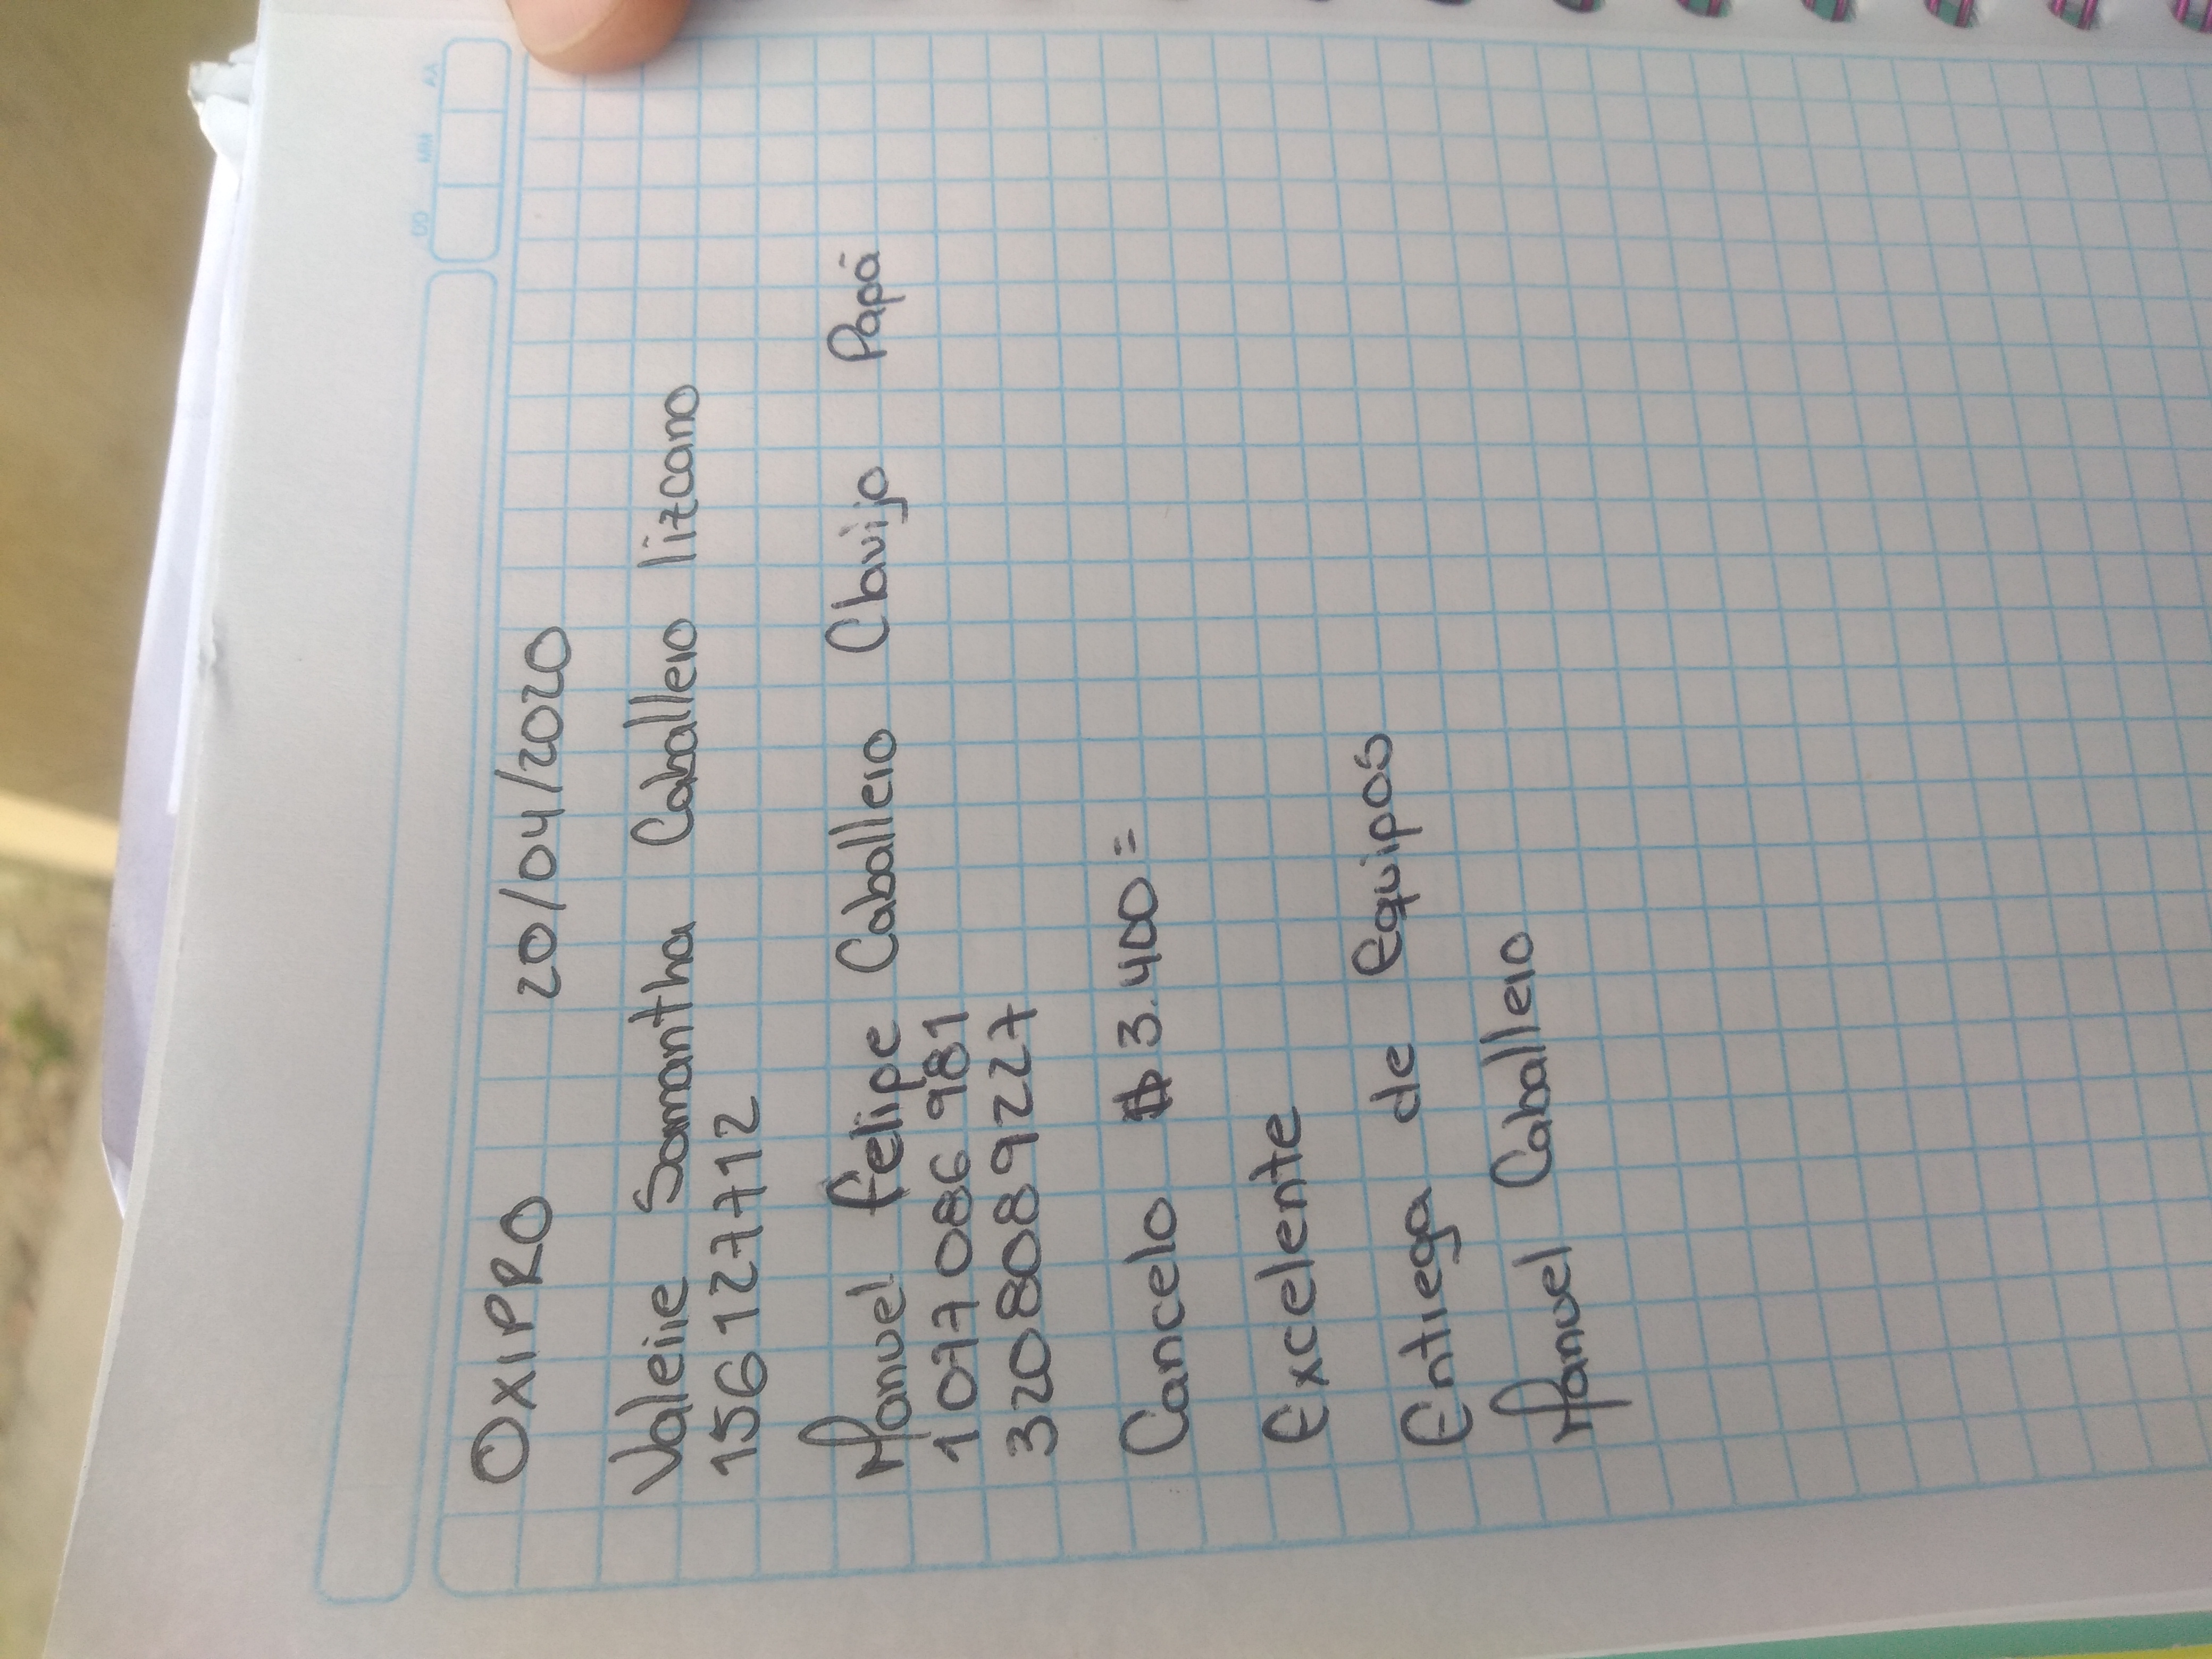 DD MM AA
OXIPRO 20/04/2020
Valerie Samantha Caballero lizcano
156127712
Manuel felipe Caballero Clavijo Papá
1077086981
3208089227
Cancelo $3.400=
Excelente
Entrega de equipos
Manuel Caballero